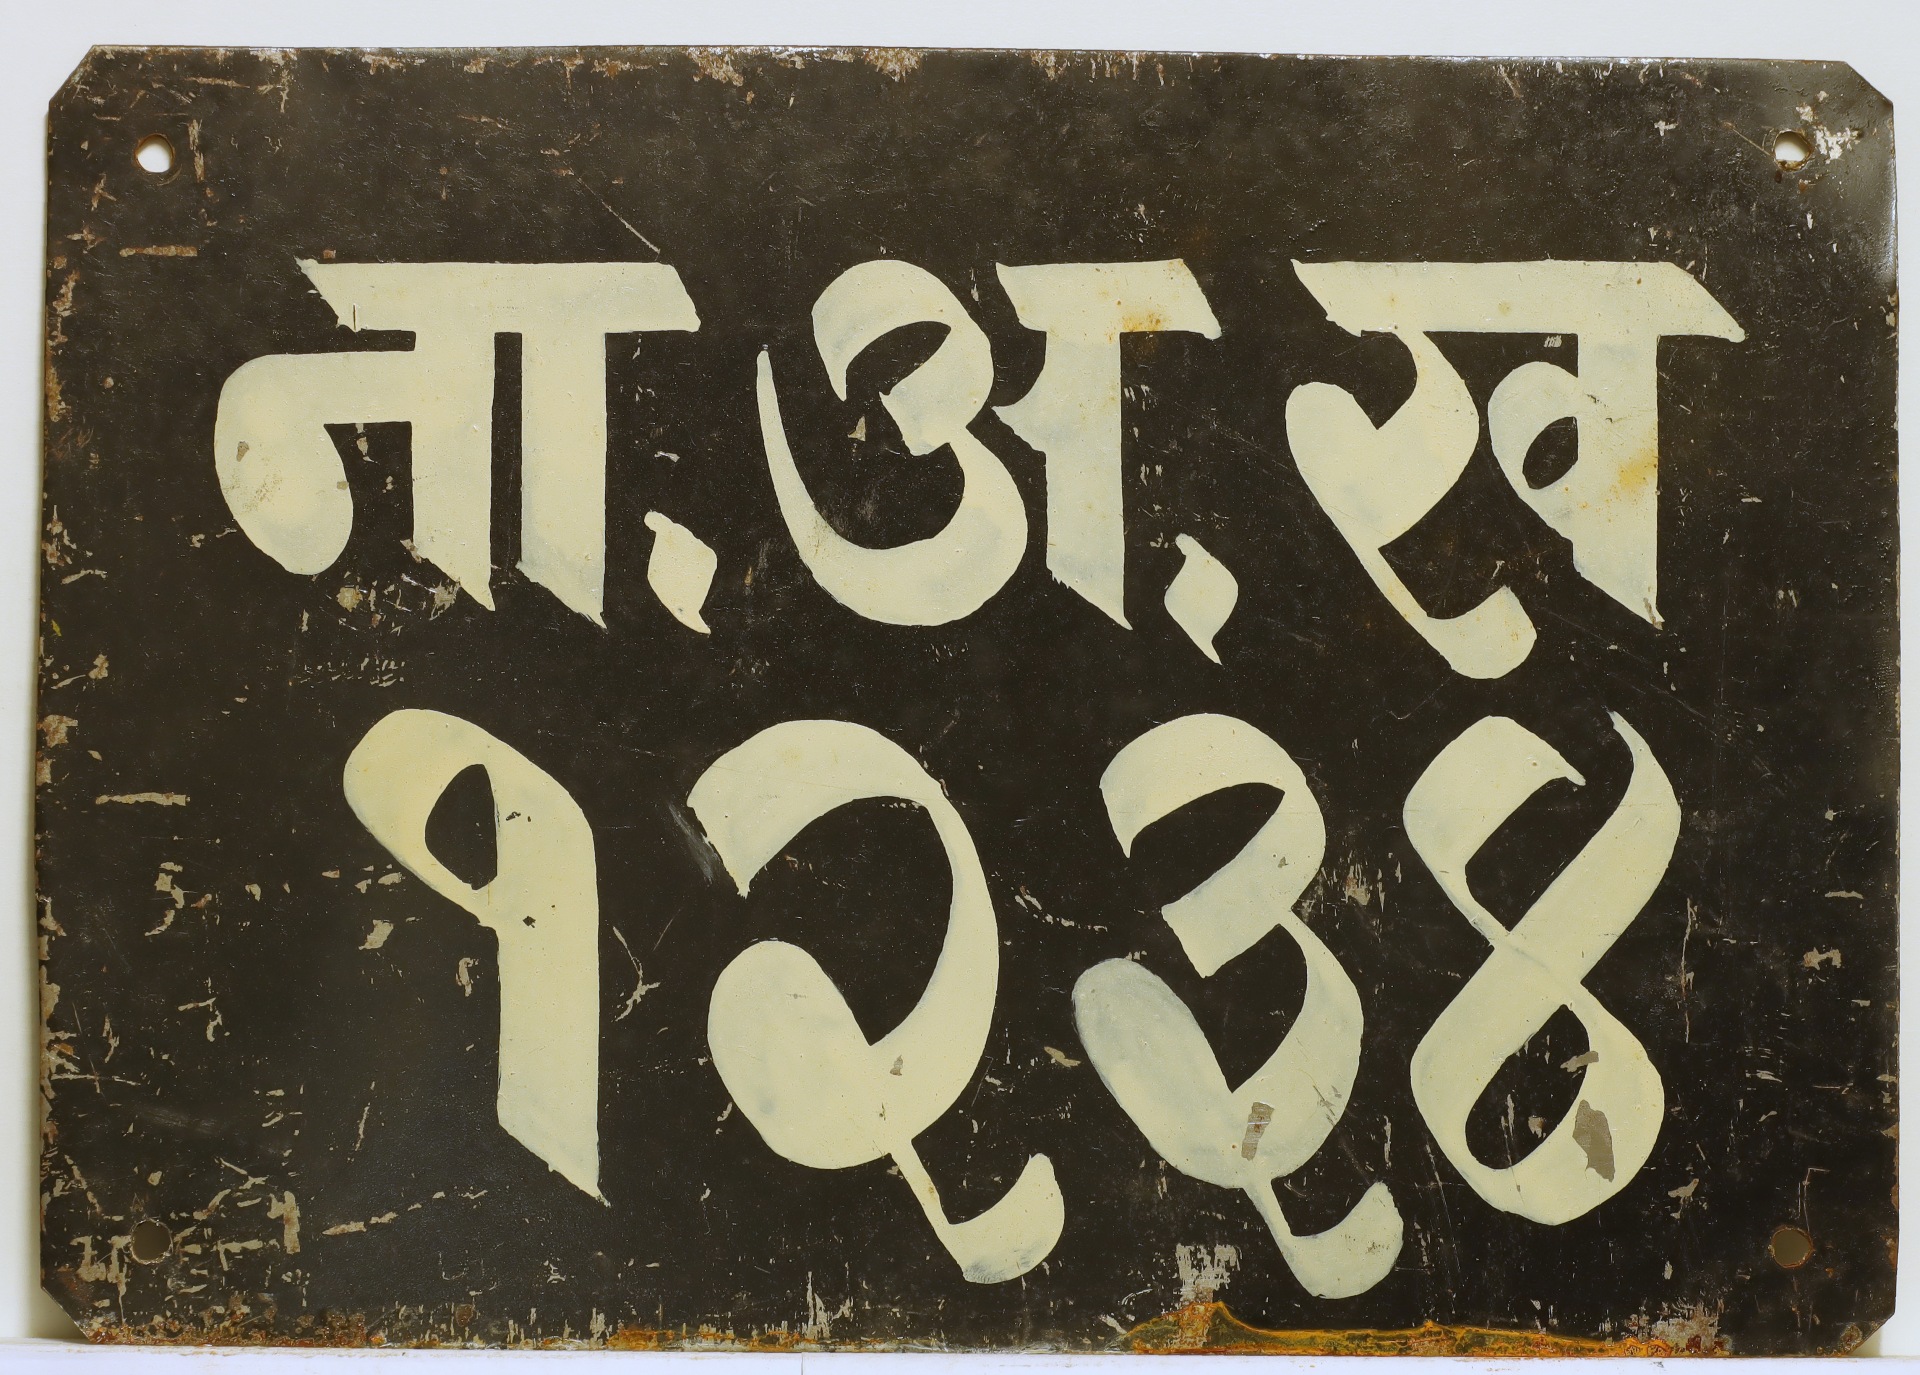 ना.अ.ख
१२३४